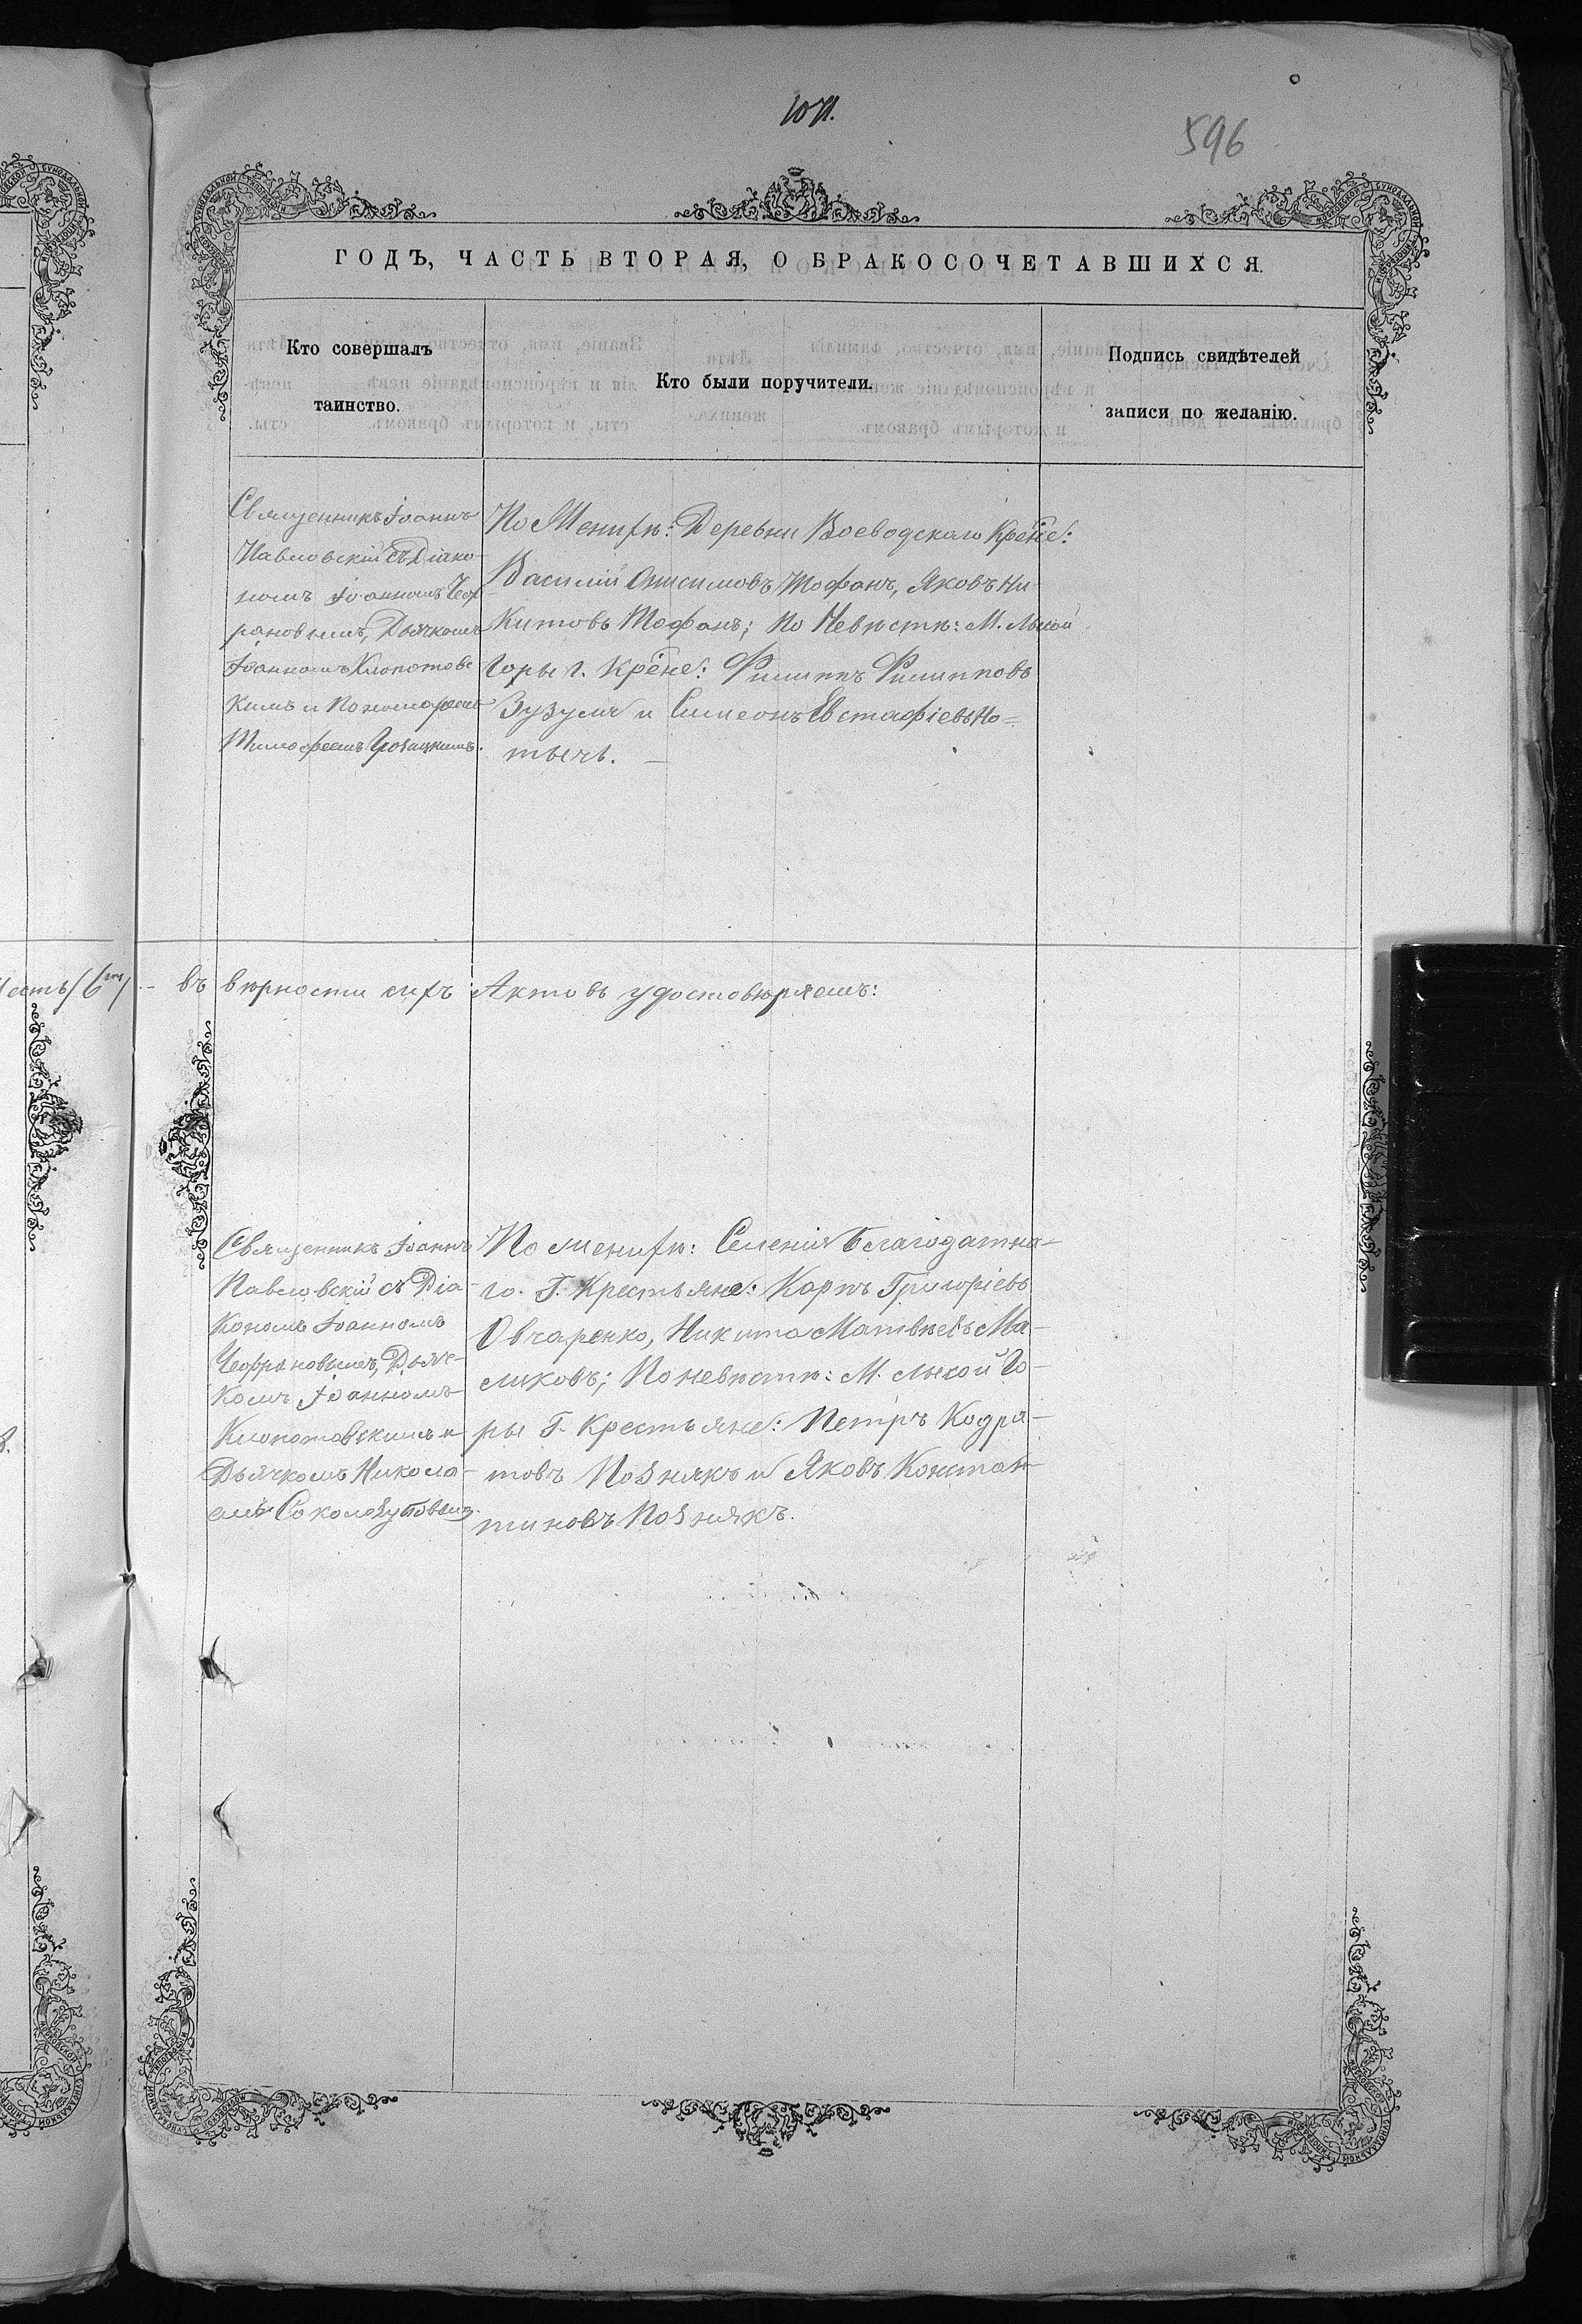 1071.
596
ГОДЪ, ЧАСТЬ ВТОРАЯ, О БРАКОСОЧЕТАВШИХСЯ.
Кто совершалъ
таинство.
Кто были поручители.
Подпись свидѣтелей
записи по желанію.
Священникъ Іоаннъ
Павловскій съ Діако-
номъ Іоанномъ Чеф-
рановымъ, Дьячкомъ
Іоанномъ Клопотовс
кимъ и Пономаремъ
Тимофеемъ
По Женихѣ: Деревни Воеводскаго Крѣне:
Василій Онисимовъ Тофанъ, Яковъ Ни-
китовъ Тофанъ; По Невѣстѣ: М. Лысой
Горы г. Крѣне: Филиппъ Филипповъ
Зузуля и Симеонъ Евстафіевъ Но=
тычъ. —
Шесть/6/ — въ вѣрности сихъ Актовъ удостовѣряемъ:
Священникъ Іоаннъ
Павловскій съ Діа-
кономъ Іоанномъ
Чефрановымъ, Дьяч-
комъ Іоанномъ
Клопотовскимъ и
Дьячкомъ Никола-
емъ
По женихѣ: Селенія Благодатна-
го. Г. Крестьяне: Карпъ Григоріевъ
Овчаренко, Никита Матвѣевъ Ма-
ликовъ; По невѣстѣ: М. Лысой Го-
ры Г. Крестьяне: Петръ Кодра-
товъ Познякъ и Яковъ Констан-
тиновъ Познякъ.